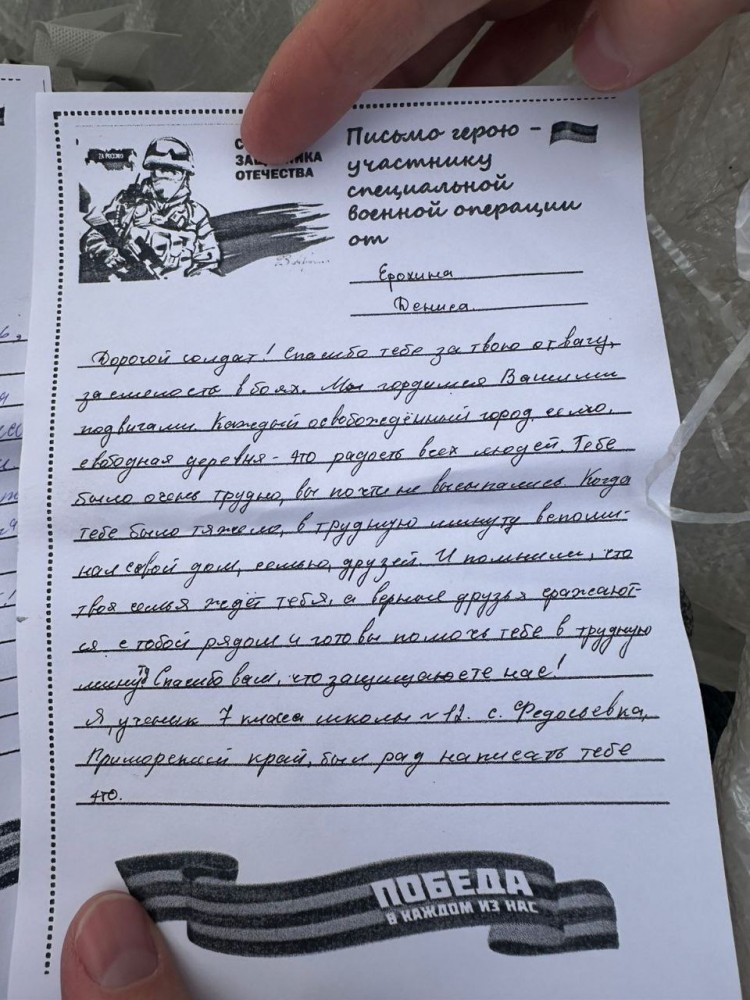 ZА РОССИЮ
С
ЗАЩ НИКА
ОТЕЧЕСТВА
Письмо герою -
участнику
специальной
военной операции
от
Ерохина
Дениса.
Дорогой солдат! Спасибо тебе за твою отвагу,
за смелость в боях. Мы гордимся Вашими
подвигами. Каждый освобождённый город, село,
свободная деревня - это радость всех людей. Тебе
было очень трудно, вы почти не высыпались. Когда
тебе было тяжело, в трудную минуту вспоми-
нал свой дом, семью, друзей. И помнили, что
твоя семья ждёт тебя, а верные друзья сражают-
ся с тобой рядом и готовы помочь тебе в трудную
минуту. Спасибо вам, что защищаете нас!
Я, ученик 7 класса школы №12. с. Федосьевка,
Приморский край, был рад написать тебе
это.
ПОБЕДА
В КАЖДОМ ИЗ НАС